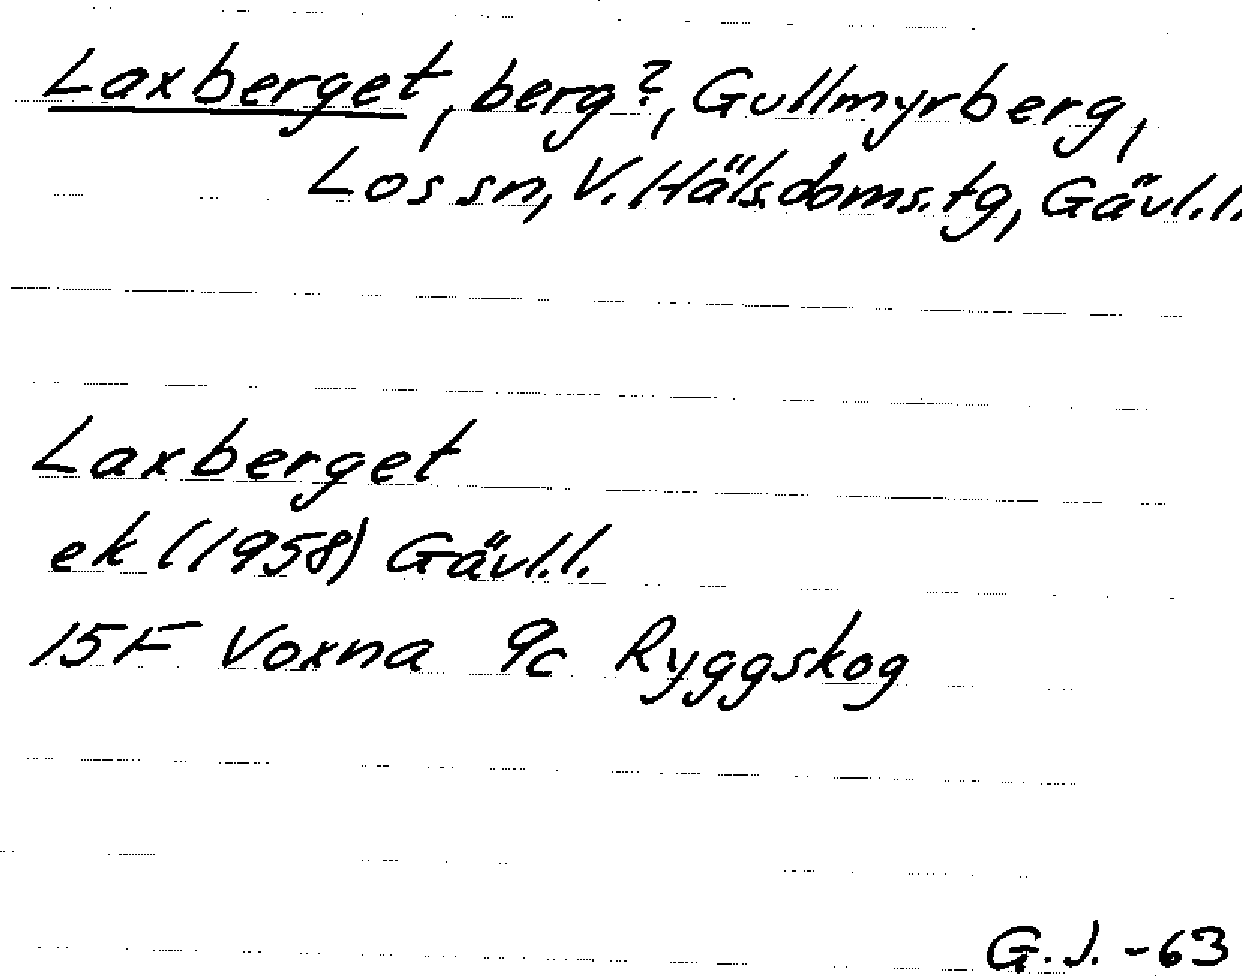 Laxberget, berg?, Gullmyrberg,
Los sn, V. Häls.doms.tg, Gävl.l.
Laxberget
ek (1958) Gävl.l.
15F Voxna 9c Ryggskog
G.J. -63